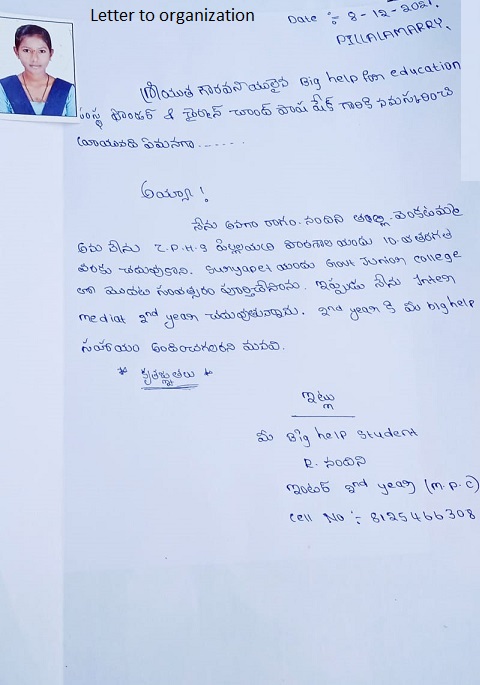 Letter to organization
Date :- 8-12-2021.
PILLALAMARRY.
గౌరవనీయులైన Big help for education
సంస్థ ఫౌండర్ & ఛైర్మన్ చాంద్ పాషా షేక్ గారికి నమస్కరించి
వ్రాయునది ఏమనగా......
అయ్యా!
నేను అనగా రాగం. నందిని తండ్రి వెంకటయ్య
అను నేను Z.P.H.S పిల్లలమర్రి పాఠశాల యందు 10.వ తరగతి
వరకు చదువుకొని. Suryapet యందు Govt Junior College
లో మొదటి సంవత్సరం పూర్తిచేసినను. ఇప్పుడు నేను Inter
mediat 2nd year చదువుతున్నాను. 2nd year కి మీ big help
సహాయం అందించగలరని మనవి.
* కృతజ్ఞతలు *
ఇట్లు
మీ Big help Student
R. నందిని
ఇంటర్ 2nd year (M.P.C)
Cell No :- 8125466308